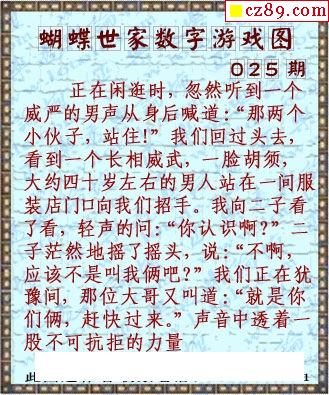 cz89.com
蝴蝶世家数字游戏图
025 期
正在闲逛时，忽然听到一个
威严的男声从身后喊道：“那两个
小伙子，站住！”我们回过头去，
看到一个长相威武，一脸胡须，
大约四十岁左右的男人站在一间服
装店门口向我们招手。我向二子看
了看，轻声的问：“你认识啊？”二
子茫然地摇了摇头，说：“不啊，
应该不是叫我俩吧？”我们正在犹
豫间，那位大哥又叫道：“就是你
们俩，赶快过来。”声音中透着一
股不可抗拒的力量